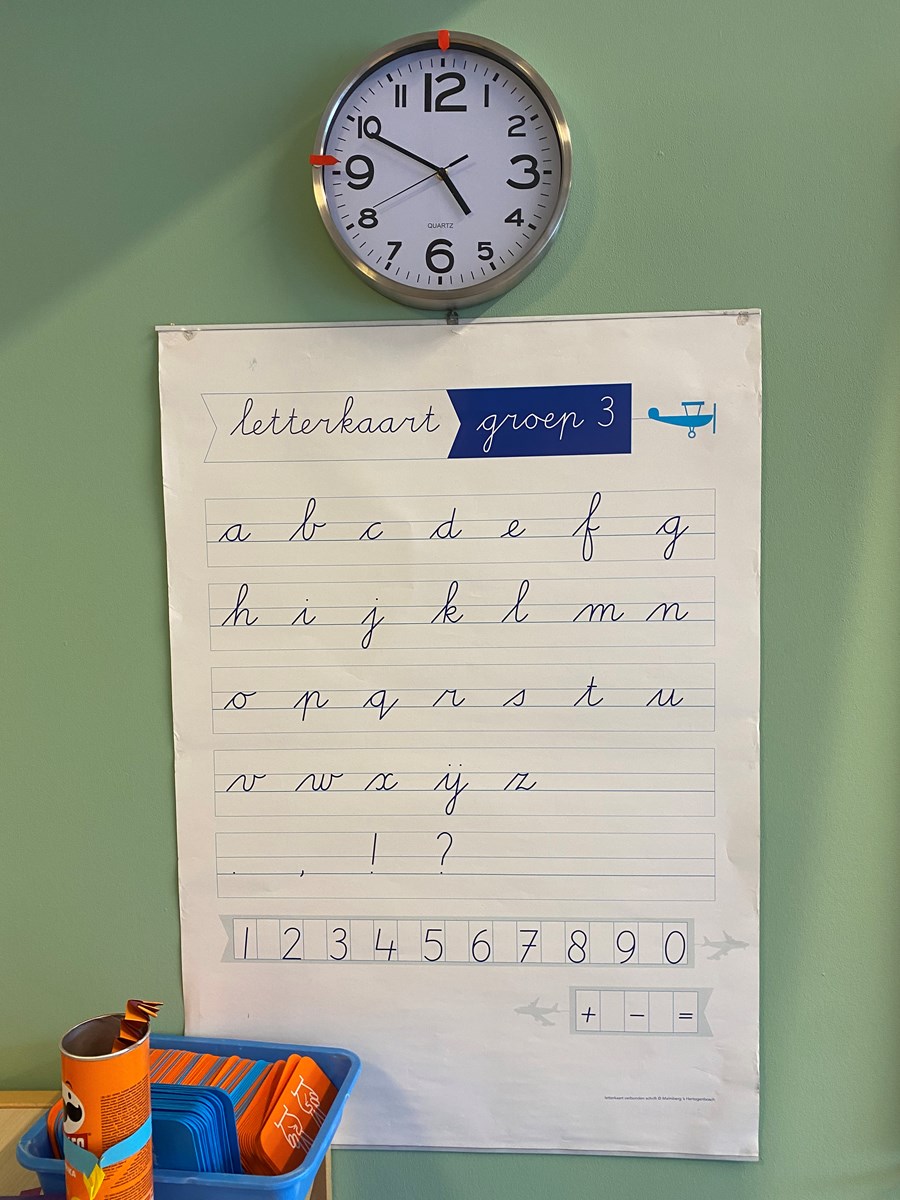 11 12 1
10 2
9 3
8 4
QUARTZ
7 6 5
letterkaart groep 3
a b c d e f g
h i j k l m n
o p q r s t u
v w x ij z
. , ! ?
1 2 3 4 5 6 7 8 9 0
+ - =